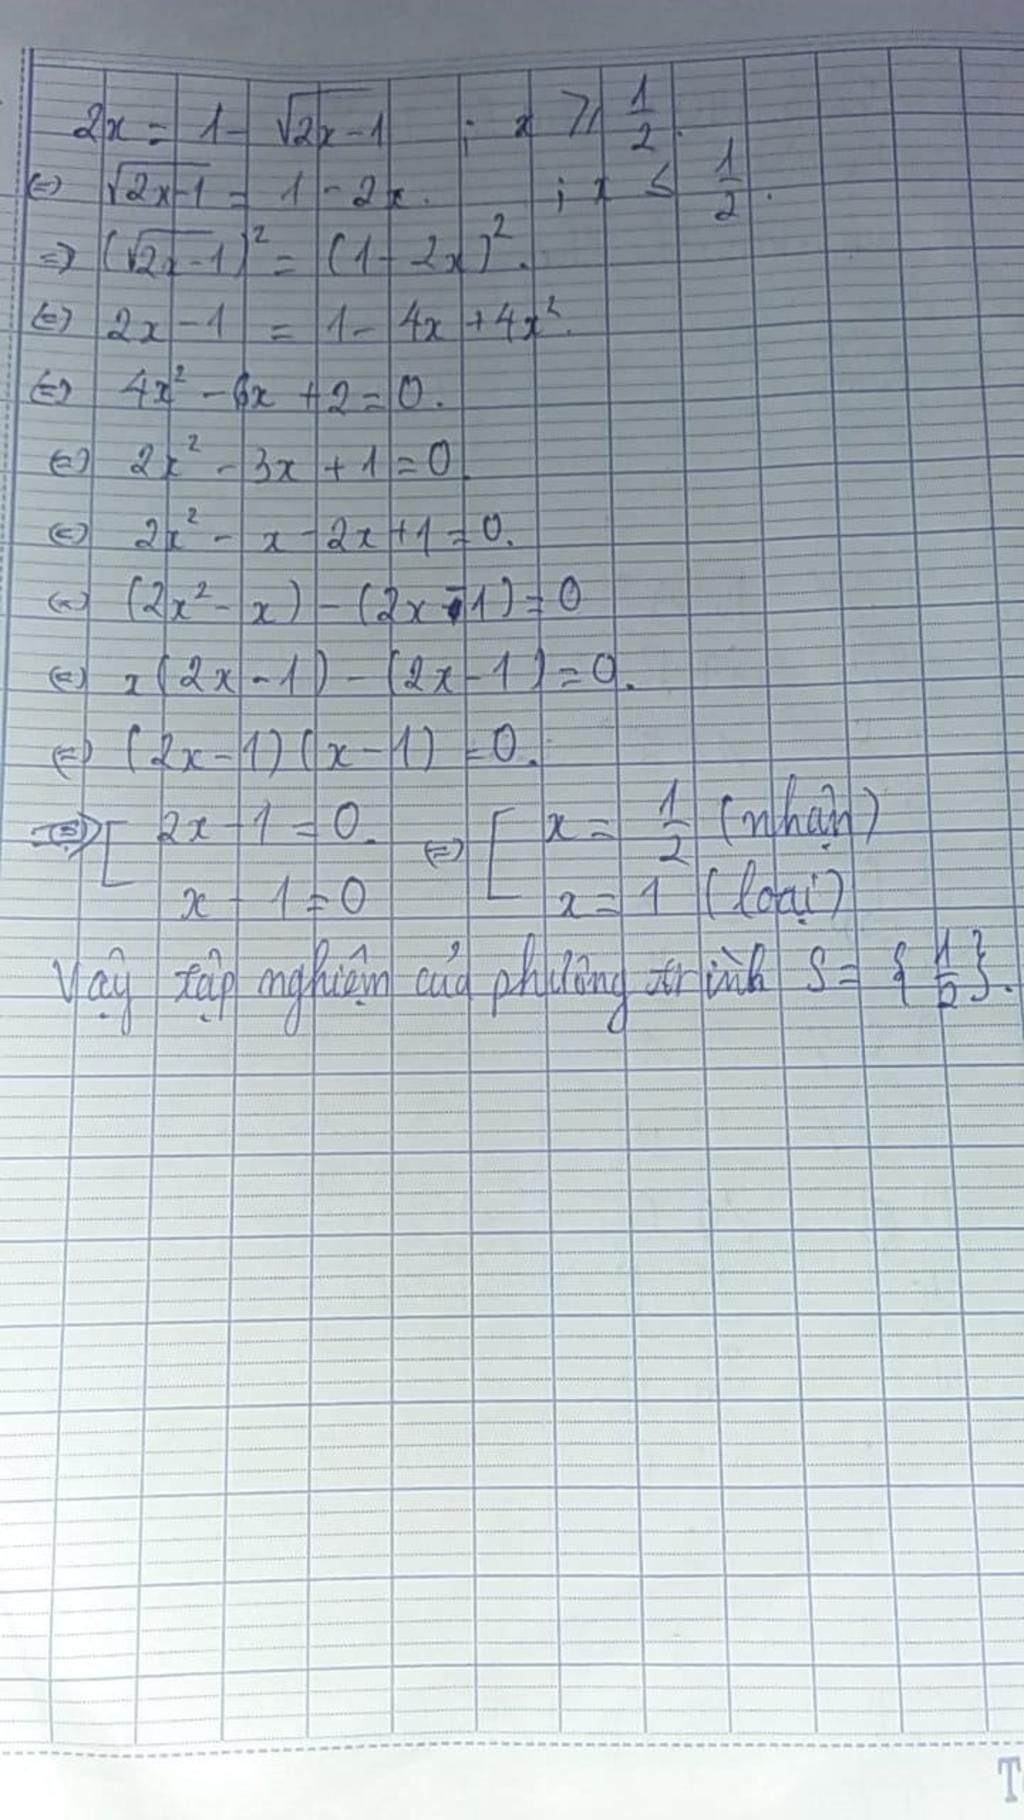 2x = 1 - √(2x-1) ; x ≥ 1/2.
(=) √(2x-1) = 1 - 2x. ; x ≤ 1/2.
=> (√(2x-1))² = (1 - 2x)².
(=) 2x - 1 = 1 - 4x + 4x².
(=) 4x² - 6x + 2 = 0.
(=) 2x² - 3x + 1 = 0
(=) 2x² - x - 2x + 1 = 0.
(=) (2x² - x) - (2x - 1) = 0
(=) x(2x - 1) - (2x - 1) = 0.
(=) (2x - 1)(x - 1) = 0.
(=) [ 2x - 1 = 0. (=) [ x = 1/2 (nhận)
x - 1 = 0 x = 1 (loại)
Vậy tập nghiệm của phương trình S = {1/2}.
T